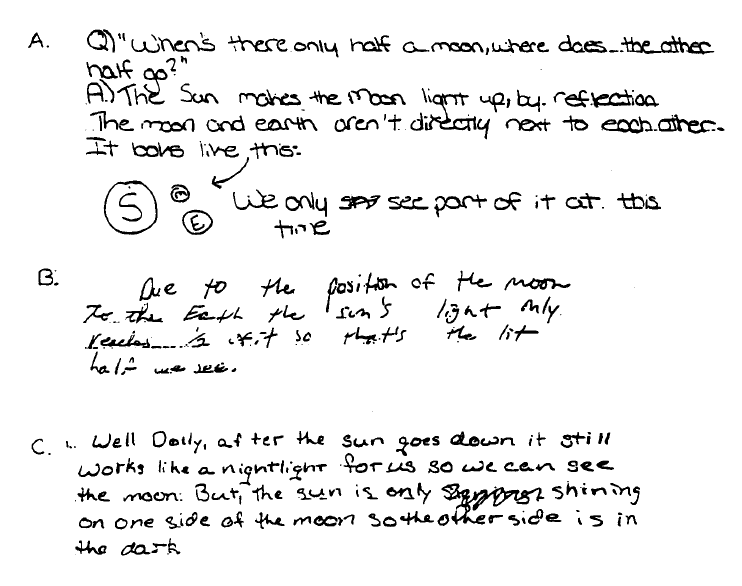 A. Q) "When's there only half a moon, where does the other
half go?"
A.) The Sun makes the Moon light up, by reflection
The moon and earth aren't directly next to each other.
It looks like this:
S m E
We only see part of it at this
time
B. Due to the position of the moon
To the Earth the sun's light only
reaches ½ of it so that's the lit
half we see.
C. Well Dolly, after the sun goes down it still
works like a nightlight for us so we can see
the moon. But, the sun is only shining
on one side of the moon so the other side is in
the dark